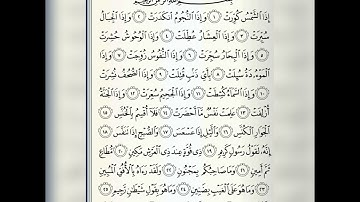 بِسْمِ اللَّهِ الرَّحْمَٰنِ الرَّحِيمِ
إِذَا الشَّمْسُ كُوِّرَتْ ١ وَإِذَا النُّجُومُ انكَدَرَتْ ٢ وَإِذَا الْجِبَالُ
سُيِّرَتْ ٣ وَإِذَا الْعِشَارُ عُطِّلَتْ ٤ وَإِذَا الْوُحُوشُ حُشِرَتْ
٥ وَإِذَا الْبِحَارُ سُجِّرَتْ ٦ وَإِذَا النُّفُوسُ زُوِّجَتْ ٧ وَإِذَا
الْمَوْءُۥدَةُ سُئِلَتْ ٨ بِأَيِّ ذَنبٍ قُتِلَتْ ٩ وَإِذَا الصُّحُفُ نُشِرَتْ
١٠ وَإِذَا السَّمَاءُ كُشِطَتْ ١١ وَإِذَا الْجَحِيمُ سُعِّرَتْ ١٢ وَإِذَا الْجَنَّةُ
أُزْلِفَتْ ١٣ عَلِمَتْ نَفْسٌ مَّا أَحْضَرَتْ ١٤ فَلَا أُقْسِمُ بِالْخُنَّسِ ١٥
الْجَوَارِ الْكُنَّسِ ١٦ وَاللَّيْلِ إِذَا عَسْعَسَ ١٧ وَالصُّبْحِ إِذَا تَنَفَّسَ ١٨
إِنَّهُ لَقَوْلُ رَسُولٍ كَرِيمٍ ١٩ ذِي قُوَّةٍ عِندَ ذِي الْعَرْشِ مَكِينٍ ٢٠ مُّطَاعٍ
ثَمَّ أَمِينٍ ٢١ وَمَا صَاحِبُكُم بِمَجْنُونٍ ٢٢ وَلَقَدْ رَآهُ بِالْأُفُقِ الْمُبِينِ
٢٣ وَمَا هُوَ عَلَى الْغَيْبِ بِضَنِينٍ ٢٤ وَمَا هُوَ بِقَوْلِ شَيْطَانٍ رَّجِيمٍ ٢٥